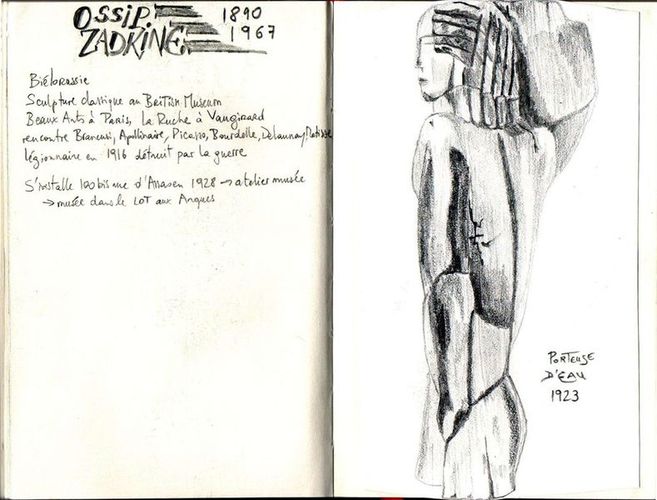 OSSIP ZADKINE
1890
1967
Biélorussie
Sculpture classique au British Museum
Beaux Arts à Paris, La Ruche à Vaugirard
rencontre Brancusi, Apollinaire, Picasso, Bourdelle, Delaunay, Matisse
légionnaire en 1916 détruit par la guerre
S'installe 100bis rue d'Assas en 1928 → atelier musée
→ musée dans le LOT aux Arques
PORTEUSE
D'EAU
1923